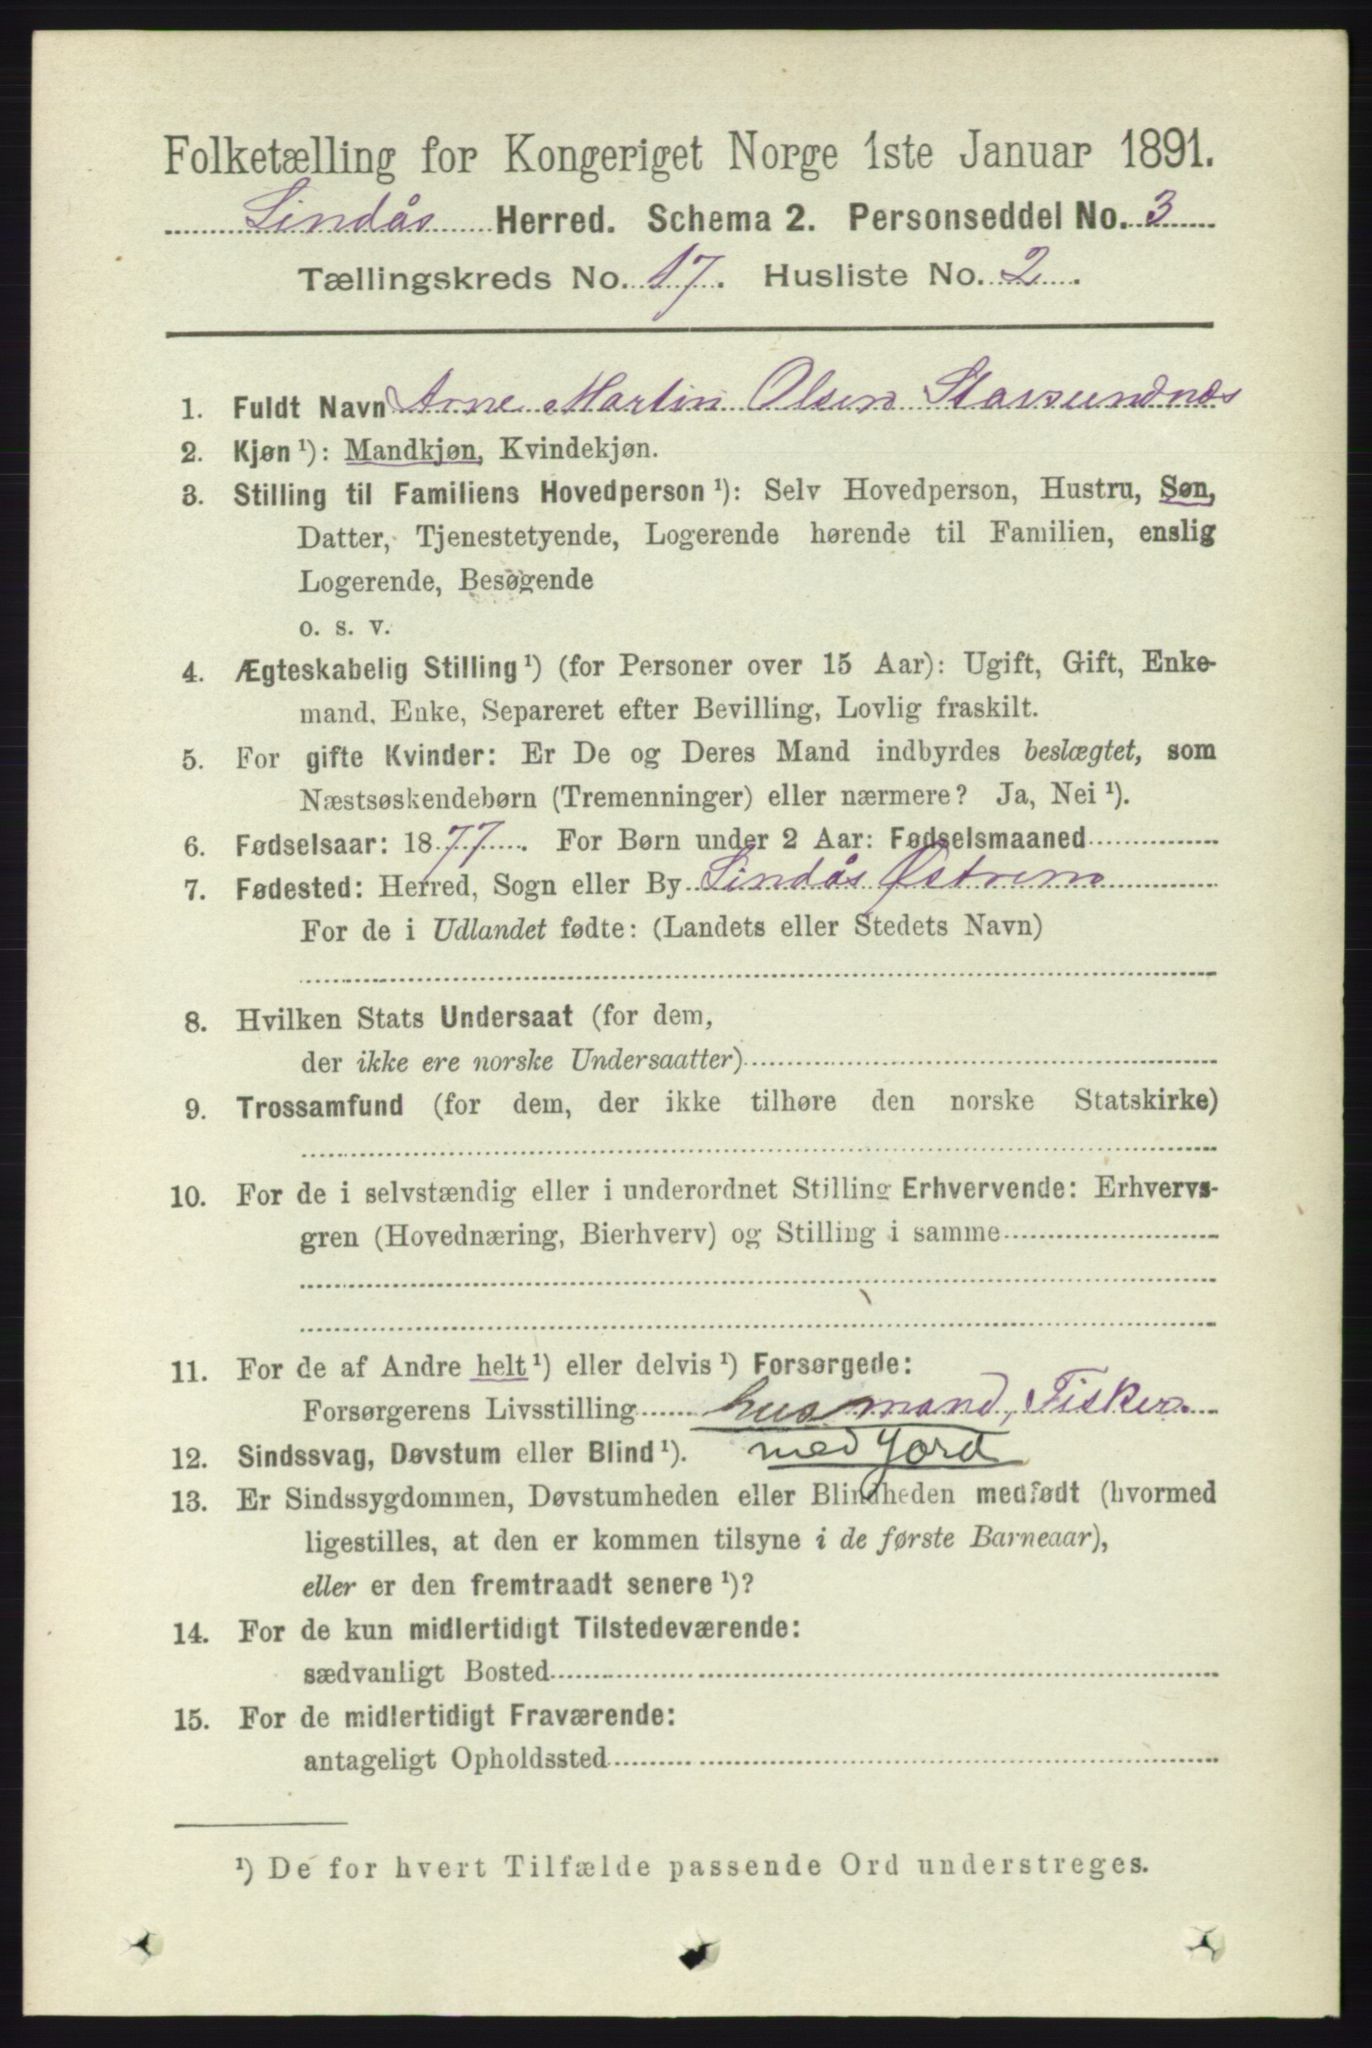 Folketælling for Kongeriget Norge 1ste Januar 1891.
Lindås Herred. Schema 2. Personseddel No. 3
Tællingskreds No. 17. Husliste No. 2.
1. Fuldt Navn Arne Martin Olsen Starsundnæs
2. Kjøn ¹): Mandkjøn, Kvindekjøn.
3. Stilling til Familiens Hovedperson ¹): Selv Hovedperson, Hustru, Søn,
Datter, Tjenestetyende, Logerende hørende til Familien, enslig
Logerende, Besøgende
o. s. v.
4. Ægteskabelig Stilling ¹) (for Personer over 15 Aar): Ugift, Gift, Enke-
mand, Enke, Separeret efter Bevilling, Lovlig fraskilt.
5. For gifte Kvinder: Er De og Deres Mand indbyrdes beslægtet, som
Næstsøskendebørn (Tremenninger) eller nærmere? Ja, Nei ¹).
6. Fødselsaar: 1877. For Børn under 2 Aar: Fødselsmaaned
7. Fødested: Herred, Sogn eller By Lindås Østrem
For de i Udlandet fødte: (Landets eller Stedets Navn)
8. Hvilken Stats Undersaat (for dem,
der ikke ere norske Undersaatter)
9. Trossamfund (for dem, der ikke tilhøre den norske Statskirke)
10. For de i selvstændig eller i underordnet Stilling Erhvervende: Erhvervs-
gren (Hovednæring, Bierhverv) og Stilling i samme
11. For de af Andre helt ¹) eller delvis ¹) Forsørgede:
Forsørgerens Livsstilling husmand, Fisker
12. Sindssvag, Døvstum eller Blind ¹). med Jord
13. Er Sindssygdommen, Døvstumheden eller Blindheden medfødt (hvormed
ligestilles, at den er kommen tilsyne i de første Barneaar),
eller er den fremtraadt senere ¹)?
14. For de kun midlertidigt Tilstedeværende:
sædvanligt Bosted
15. For de midlertidigt Fraværende:
antageligt Opholdssted
¹) De for hvert Tilfælde passende Ord understreges.